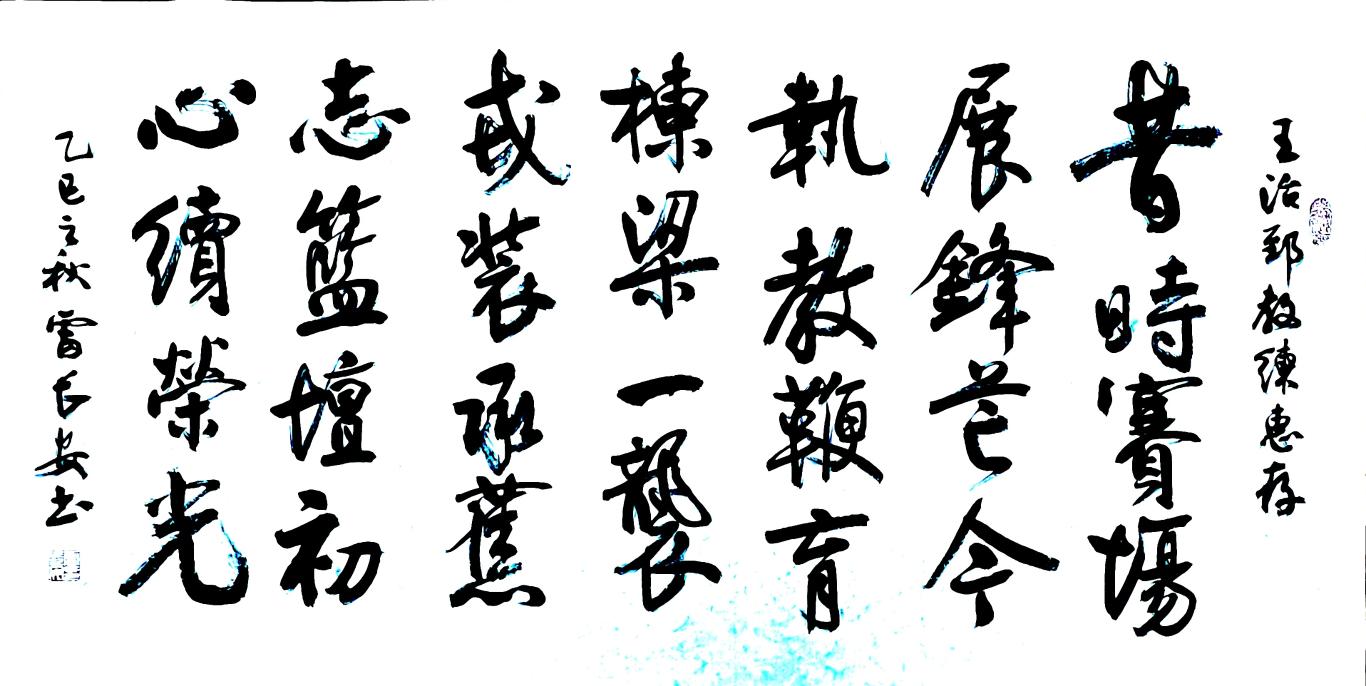 王治郅教練惠存
昔時賽場
展鋒芒今
執教鞭育
棟梁一襲
戎裝承舊
志籃壇初
心續榮光
乙巳立秋雷長安书